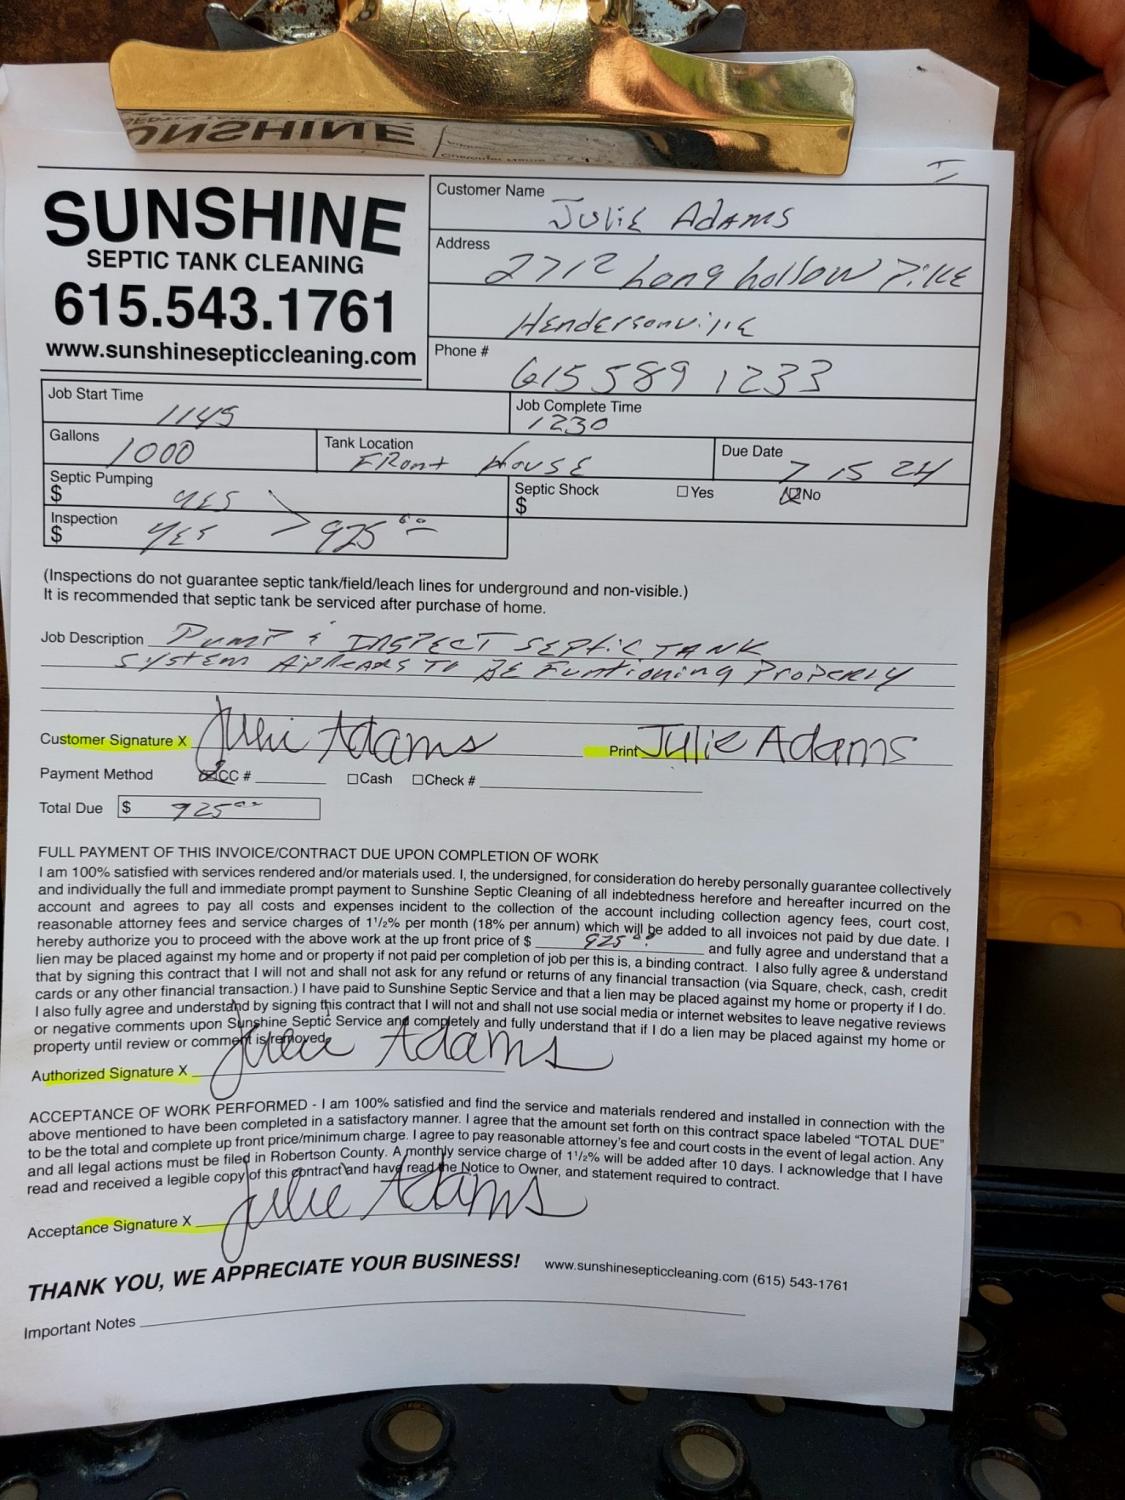 SUNSHINE
SUNSHINE
SEPTIC TANK CLEANING
615.543.1761
www.sunshinesepticcleaning.com
Customer Name Julie Adams
Address 2712 Long hollow Pike
Hendersonville
Phone # 615 589 1233
Job Start Time 1145
Job Complete Time 1230
Gallons 1000
Tank Location FRont House
Due Date 7 15 24
Septic Pumping $ YES
Septic Shock $ Yes No
Inspection $ YES 925 00
(Inspections do not guarantee septic tank/field/leach lines for underground and non-visible.)
It is recommended that septic tank be serviced after purchase of home.
Job Description Pump & INSPECT SEPtic TANK
SYSTEM APPEARS To BE Funtioning Properly
Customer Signature X Julie Adams Print Julie Adams
Payment Method CC # Cash Check #
Total Due $ 925 00
FULL PAYMENT OF THIS INVOICE/CONTRACT DUE UPON COMPLETION OF WORK
I am 100% satisfied with services rendered and/or materials used. I, the undersigned, for consideration do hereby personally guarantee collectively
and individually the full and immediate prompt payment to Sunshine Septic Cleaning of all indebtedness herefore and hereafter incurred on the
account and agrees to pay all costs and expenses incident to the collection of the account including collection agency fees, court cost,
reasonable attorney fees and service charges of 1½% per month (18% per annum) which will be added to all invoices not paid by due date. I
hereby authorize you to proceed with the above work at the up front price of $ 925 00 and fully agree and understand that a
lien may be placed against my home and or property if not paid per completion of job per this is, a binding contract. I also fully agree & understand
that by signing this contract that I will not and shall not ask for any refund or returns of any financial transaction (via Square, check, cash, credit
cards or any other financial transaction.) I have paid to Sunshine Septic Service and that a lien may be placed against my home or property if I do.
I also fully agree and understand by signing this contract that I will not and shall not use social media or internet websites to leave negative reviews
or negative comments upon Sunshine Septic Service and completely and fully understand that if I do a lien may be placed against my home or
property until review or comment is removed.
Authorized Signature X Julie Adams
ACCEPTANCE OF WORK PERFORMED - I am 100% satisfied and find the service and materials rendered and installed in connection with the
above mentioned to have been completed in a satisfactory manner. I agree that the amount set forth on this contract space labeled “TOTAL DUE”
to be the total and complete up front price/minimum charge. I agree to pay reasonable attorney's fee and court costs in the event of legal action. Any
and all legal actions must be filed in Robertson County. A monthly service charge of 1½% will be added after 10 days. I acknowledge that I have
read and received a legible copy of this contract and have read the Notice to Owner, and statement required to contract.
Acceptance Signature X Julie Adams
THANK YOU, WE APPRECIATE YOUR BUSINESS! www.sunshinesepticcleaning.com (615) 543-1761
Important Notes